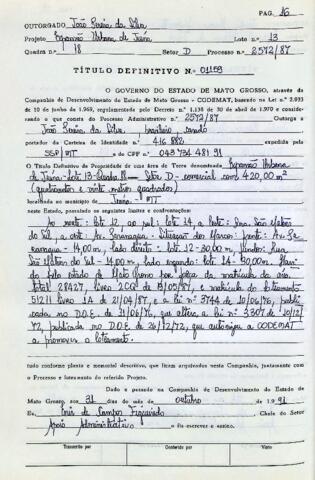 PAG. 16
OUTORGADO João Pereira da Silva
Projeto Expansão Urbana de Juína Lote n.o 13
Quadra n.o 18 Setor D Processo n.o 2572/87
TÍTULO DEFINITIVO N.o 01159
O GOVERNO DO ESTADO DE MATO GROSSO, através da
Companhia de Desenvolvimento do Estado de Mato Grosso - CODEMAT, baseado na Lei n.o 2.093
de 10 de junho de 1969, regulamentada pelo Decreto n.o 1.138 de 30 de abril de 1970 e considerando
o que consta do Processo Administrativo n.o 2572/87 Outorga a
João Pereira da Silva, brasileiro, casado
portador da Carteira de Identidade n.o 416 882 expedida pelo
SSP/MT e do CPF n.o 043 734 481 91
O Título Definitivo de Propriedade de uma área de Terra denominada Expansão Urbana
de Juína - Lote 13 - Quadra 18 - Setor D - comercial com 420,00 m²
(quatrocentos e vinte metros quadrados)
localizada no município de Juína - MT
neste Estado, possuindo os seguintes limites e confrontações:
Ao norte: lote 12, ao sul: lote 14, a leste: Rua São Mateus
do Sul, a oeste: Av. Situação dos Marcos: frente: Av.
14,00m, lado direito: lote 12 - 30,00m, fundos: Rua
São Mateus do Sul - 14,00m, lado esquerdo: lote 14 - 30,00m.
pelo Estado de Mato Grosso por força da matrícula da área
total 28427, livro 2CQ de 13/05/87, e matrícula do loteamento
51211 livro 1A de 21/04/87, e a Lei nº 3744 de 10/06/76, publi
cada no D.O.E. de 11/06/76, que altera a Lei nº 3307 de 10/12/
72, publicada no D.O.E. de 26/12/72, que autoriza a CODEMAT
a promover o loteamento.
tudo conforme planta e memorial descritivo, que ficam arquivados nesta Companhia, juntamente com
o Processo e loteamento do referido Projeto.
Dado e passado na Companhia de Desenvolvimento do Estado de
Mato Grosso, aos 31 dias do mês de outubro de 1991
Eu, Enir de Campos Figueiredo, Chefe do Setor
Apoio Administrativo o fiz escrever e assino.
Transcrito por Conferido por Visto